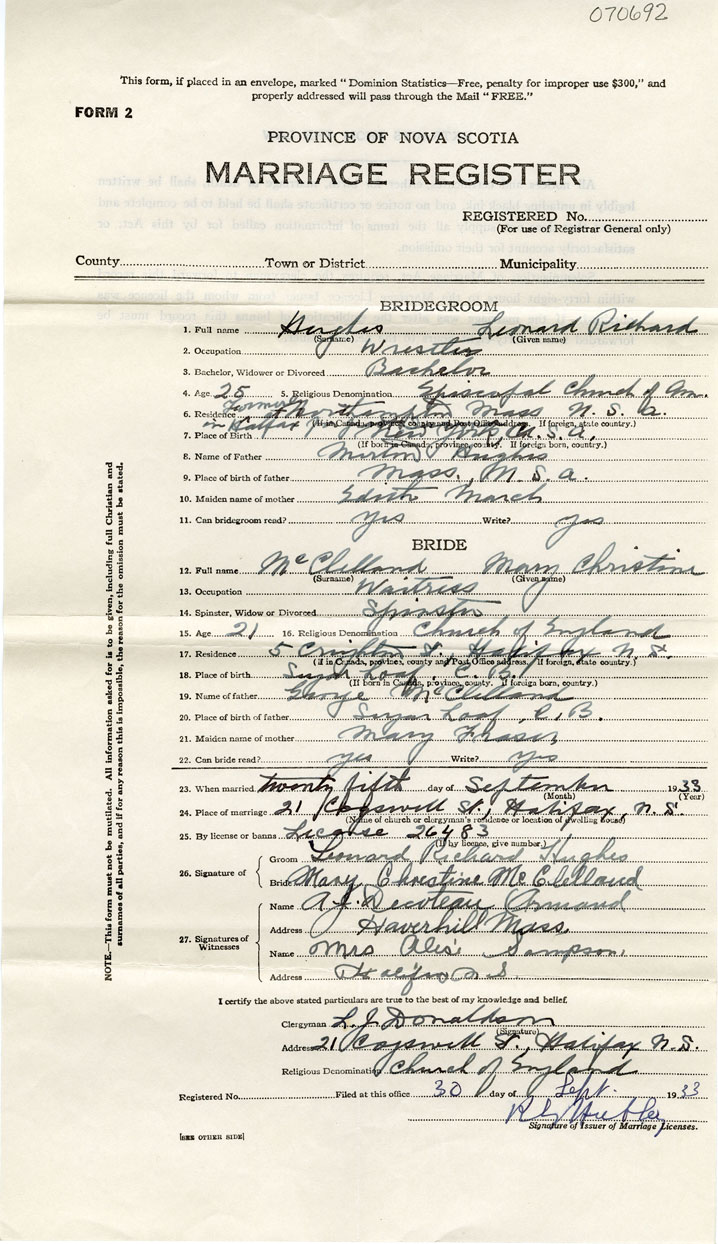 070692
This form, if placed in an envelope, marked "Dominion Statistics—Free, penalty for improper use $300," and
properly addressed will pass through the Mail "FREE."
FORM 2
PROVINCE OF NOVA SCOTIA
MARRIAGE REGISTER
REGISTERED No.
(For use of Registrar General only)
County Town or District Municipality
BRIDEGROOM
1. Full name Hughes Leonard Richard
(Surname) (Given name)
2. Occupation Wrestler
3. Bachelor, Widower or Divorced Bachelor
4. Age 25 5. Religious Denomination Episcopal Church of Am.
6. Residence Formerly of Northampton Mass U. S. a.
in Halifax (If in Canada, province, county and Post Office address. If foreign, state country.)
7. Place of Birth New York, U. S. a.,
(If born in Canada, province, county. If foreign born, country.)
8. Name of Father Hughes
9. Place of birth of father Mass., U. S. a.
10. Maiden name of mother Edith March
11. Can bridegroom read? yes Write? yes
BRIDE
12. Full name McClelland Mary Christine
(Surname) (Given name)
13. Occupation Waitress
14. Spinster, Widow or Divorced Spinster
15. Age 21 16. Religious Denomination Church of England
17. Residence 5 St., Halifax N. S.
(If in Canada, province, county and Post Office address. If foreign, state country.)
18. Place of birth Sugar Loaf, C. B.
(If born in Canada, province, county. If foreign born, country.)
19. Name of father George McClelland
20. Place of birth of father Sugar Loaf, C. B.
21. Maiden name of mother Mary Fraser
22. Can bride read? yes Write? yes
23. When married twenty fifth day of September 1933
(Month) (Year)
24. Place of marriage 21 Cogswell St., Halifax, N. S.
(Name of church or clergyman's residence or location of dwelling house)
25. By license or banns License 26483
(If by licence, give number.)
26. Signature of Groom Leonard Richard Hughes
Bride Mary Christine McClelland
27. Signatures of Witnesses Name A. J. Decoteau Armand
Address Haverhill Mass.
Name Mrs Sampson
Address Halifax N S
I certify the above stated particulars are true to the best of my knowledge and belief.
Clergyman L. J. Donaldson
(Signature)
Address 21 Cogswell St., Halifax N. S.
Religious Denomination Church of England
Registered No. Filed at this office 30 day of Sept 1933
Signature of Issuer of Marriage Licenses.
[SEE OTHER SIDE]
NOTE.—This form must not be mutilated. All information asked for is to be given, including full Christian and
surnames of all parties, and if for any reason this is impossible, the reason for the omission must be stated.